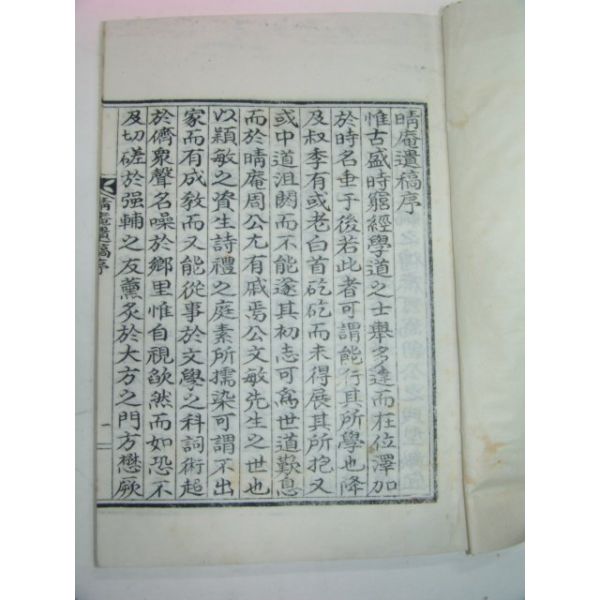 晴庵遺稿序
惟古盛時窮經學道之士舉多達而在位澤加
於時名垂于後若此者可謂能行其所學也降
及叔季有或老白首矻矻而未得展其所抱又
或中道沮閼而不能遂其初志可爲世道歎息
而於晴庵周公尤有戚焉公文敏先生之世也
以穎敏之資生詩禮之庭素所擩染可謂不出
家而有成敎而又能從事於文學之科詞術超
於儕衆聲名噪於鄉里惟自視欿然而如恐不
及切磋於强輔之友薰炙於大方之門方懋厥
晴庵遺稿序
一